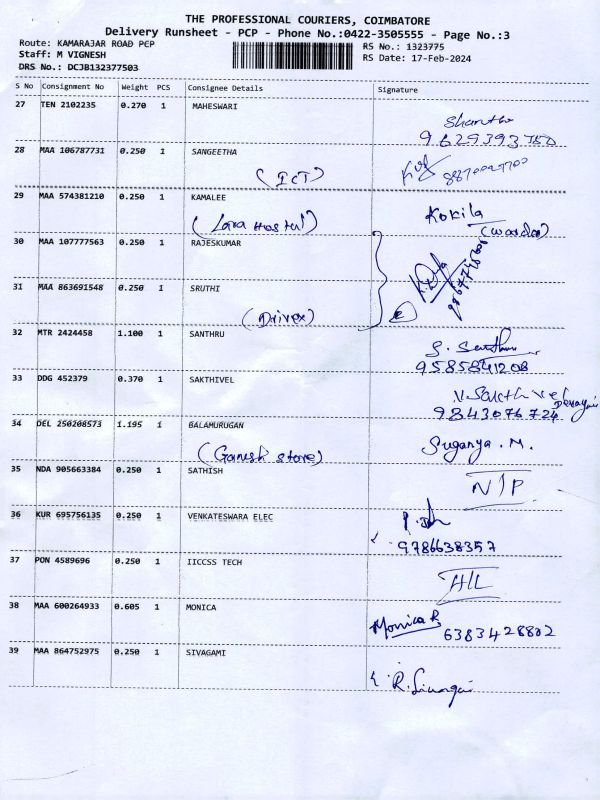 THE PROFESSIONAL COURIERS, COIMBATORE
Delivery Runsheet - PCP - Phone No.:0422-3505555 - Page No.:3
Route: KAMARAJAR ROAD PCP
RS No.: 1323775
Staff: M VIGNESH
RS Date: 17-Feb-2024
DRS No.: DCJB132377503
S No Consignment No Weight PCS Consignee Details Signature
27 TEN 2102235 0.270 1 MAHESWARI
9629393750
28 MAA 106787731 0.250 1 SANGEETHA
(ICT)
29 MAA 574381210 0.250 1 KAMALEE
(Lara Hostel) Kokila
(warden)
30 MAA 107777563 0.250 1 RAJESKUMAR
31 MAA 863691548 0.250 1 SRUTHI
(Drivex)
32 MTR 2424458 1.100 1 SANTHRU
9585841208
33 DDG 452379 0.370 1 SAKTHIVEL
9843076724
34 DEL 250208573 1.195 1 BALAMURUGAN
(Ganesh store) Suganya. M.
35 NDA 905663384 0.250 1 SATHISH
NTP
36 KUR 695756135 0.250 1 VENKATESWARA ELEC
9786638357
37 PON 4589696 0.250 1 IICCSS TECH
38 MAA 600264933 0.605 1 MONICA
Monica R 6383428802
39 MAA 864752975 0.250 1 SIVAGAMI